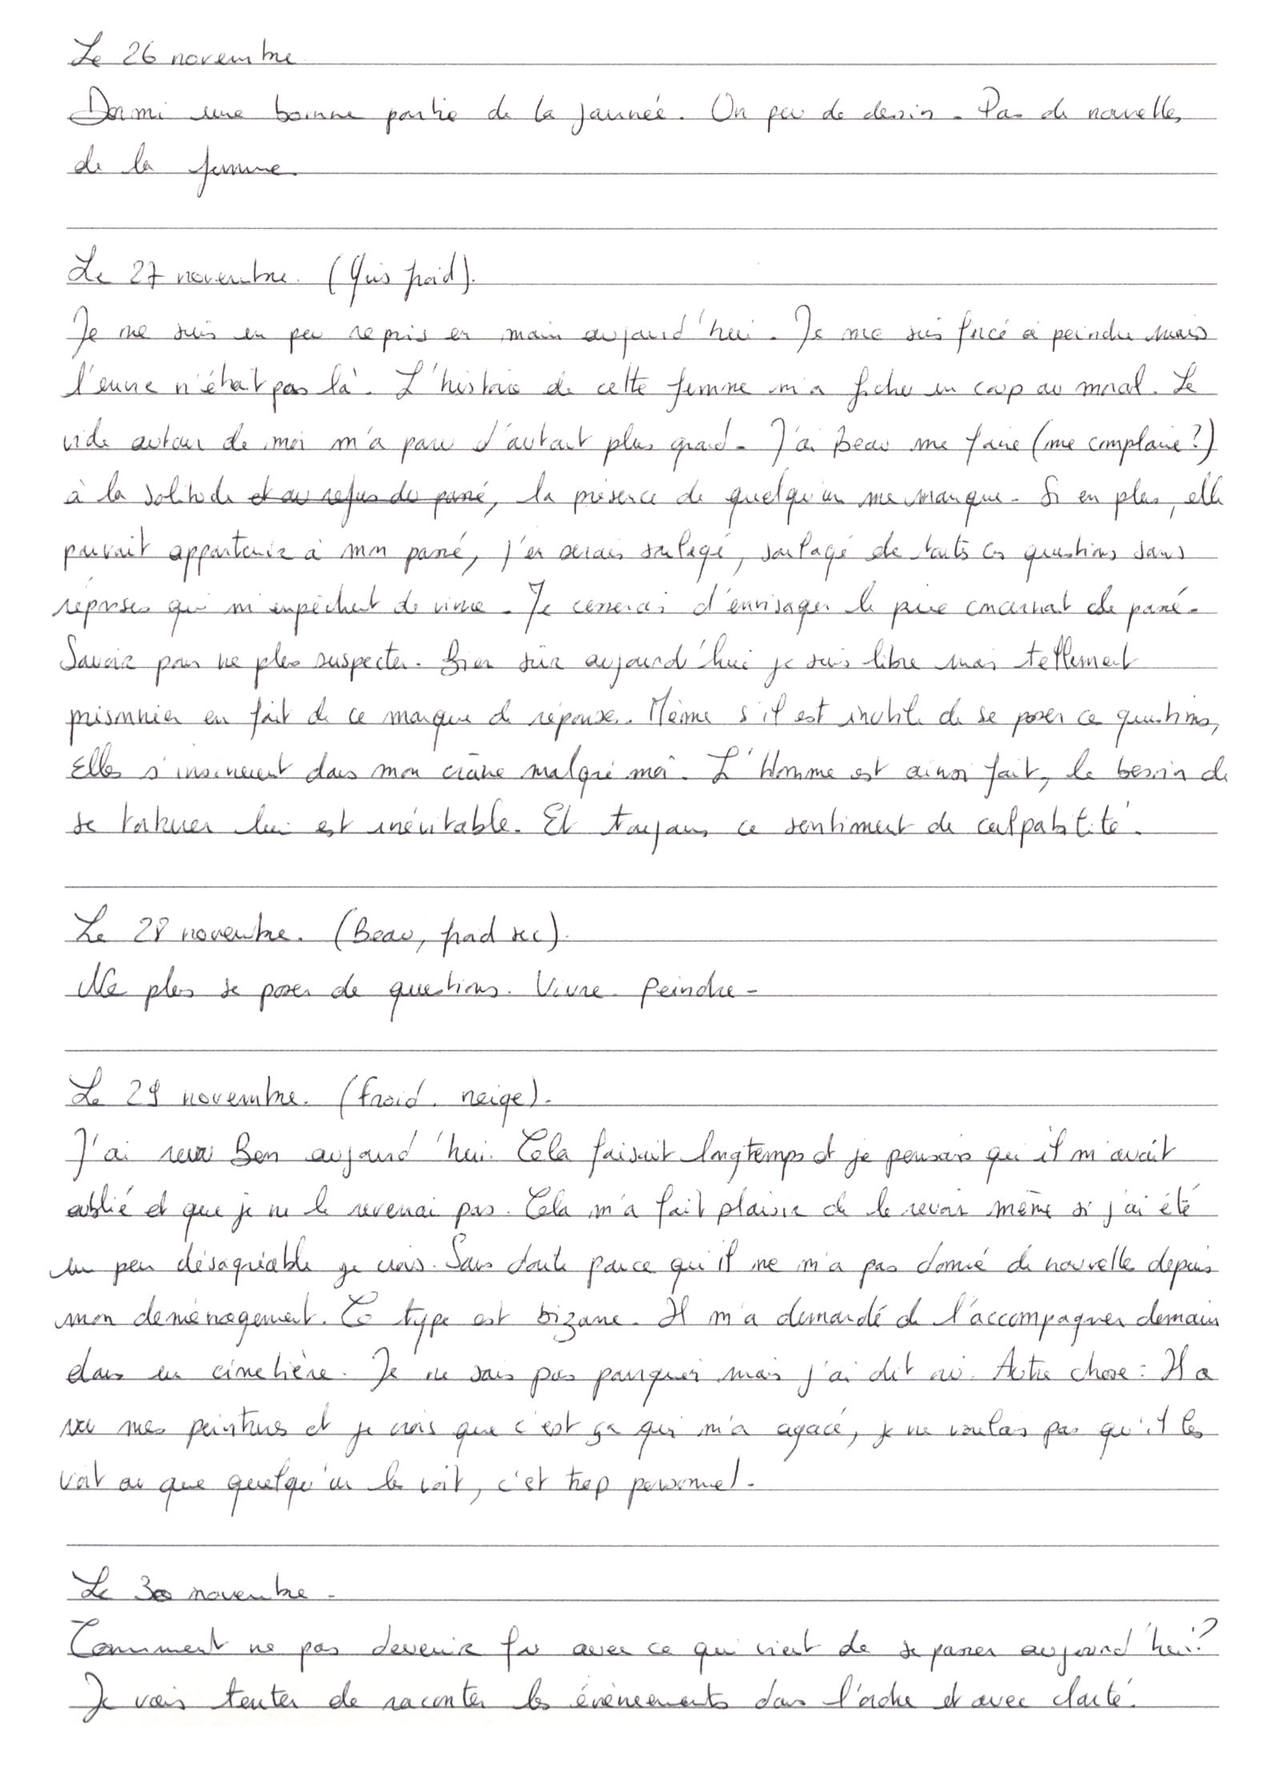 Le 26 novembre
Dormi une bonne partie de la journée. Un peu de dessin. Pas de nouvelles
de la femme.
Le 27 novembre. (Gris froid).
Je me suis un peu repris en main aujourd'hui. Je me suis forcé à peindre mais
l'envie n'était pas là. L'histoire de cette femme m'a fichu un coup au moral. Le
vide autour de moi m'a paru d'autant plus grand. J'ai Beau me faire (me complaire?)
à la solitude et au refus du passé, la présence de quelqu'un me manque. Si en plus, elle
pouvait appartenir à mon passé, j'en serais soulagé, soulagé de toutes ces questions sans
réponses qui m'empêchent de vivre. Je cesserai d'envisager le pire concernant ce passé.
Savoir pour ne plus suspecter. Bien sûr aujourd'hui je suis libre mais tellement
prisonnier en fait de ce manque de réponse. Même s'il est inutile de se poser ces questions,
Elles s'insinuent dans mon crâne malgré moi. L'Homme est ainsi fait, le besoin de
se torturer lui est inévitable. Et toujours ce sentiment de culpabilité.
Le 28 novembre. (Beau, froid sec).
Ne plus se poser de questions. Vivre. Peindre.
Le 29 novembre. (Froid. neige).
J'ai revu Ben aujourd'hui. Cela faisait longtemps et je pensais qu'il m'avait
oublié et que je ne le reverrai pas. Cela m'a fait plaisir de le revoir même si j'ai été
un peu désagréable je crois. Sans doute parce qu'il ne m'a pas donné de nouvelle depuis
mon déménagement. Ce type est bizarre. Il m'a demandé de l'accompagner demain
dans un cimetière. Je ne sais pas pourquoi mais j'ai dit oui. Autre chose : Il a
vu mes peintures et je crois que c'est ça qui m'a agacé, je ne voulais pas qu'il les
voit ou que quelqu'un les voit, c'est trop personnel.
Le 30 novembre.
Comment ne pas devenir fou avec ce qui vient de se passer aujourd'hui?
Je vais tenter de raconter les évènements dans l'ordre et avec clarté.